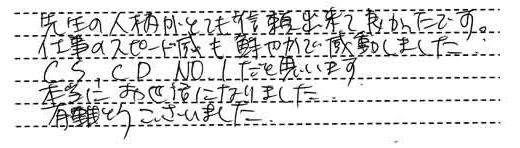 先生の人柄がとても信頼出来て良かったです。
仕事のスピード感も鮮やかで感動しました
CS, CD NO.1だと思います
本当にお世話になりました
有難うございました